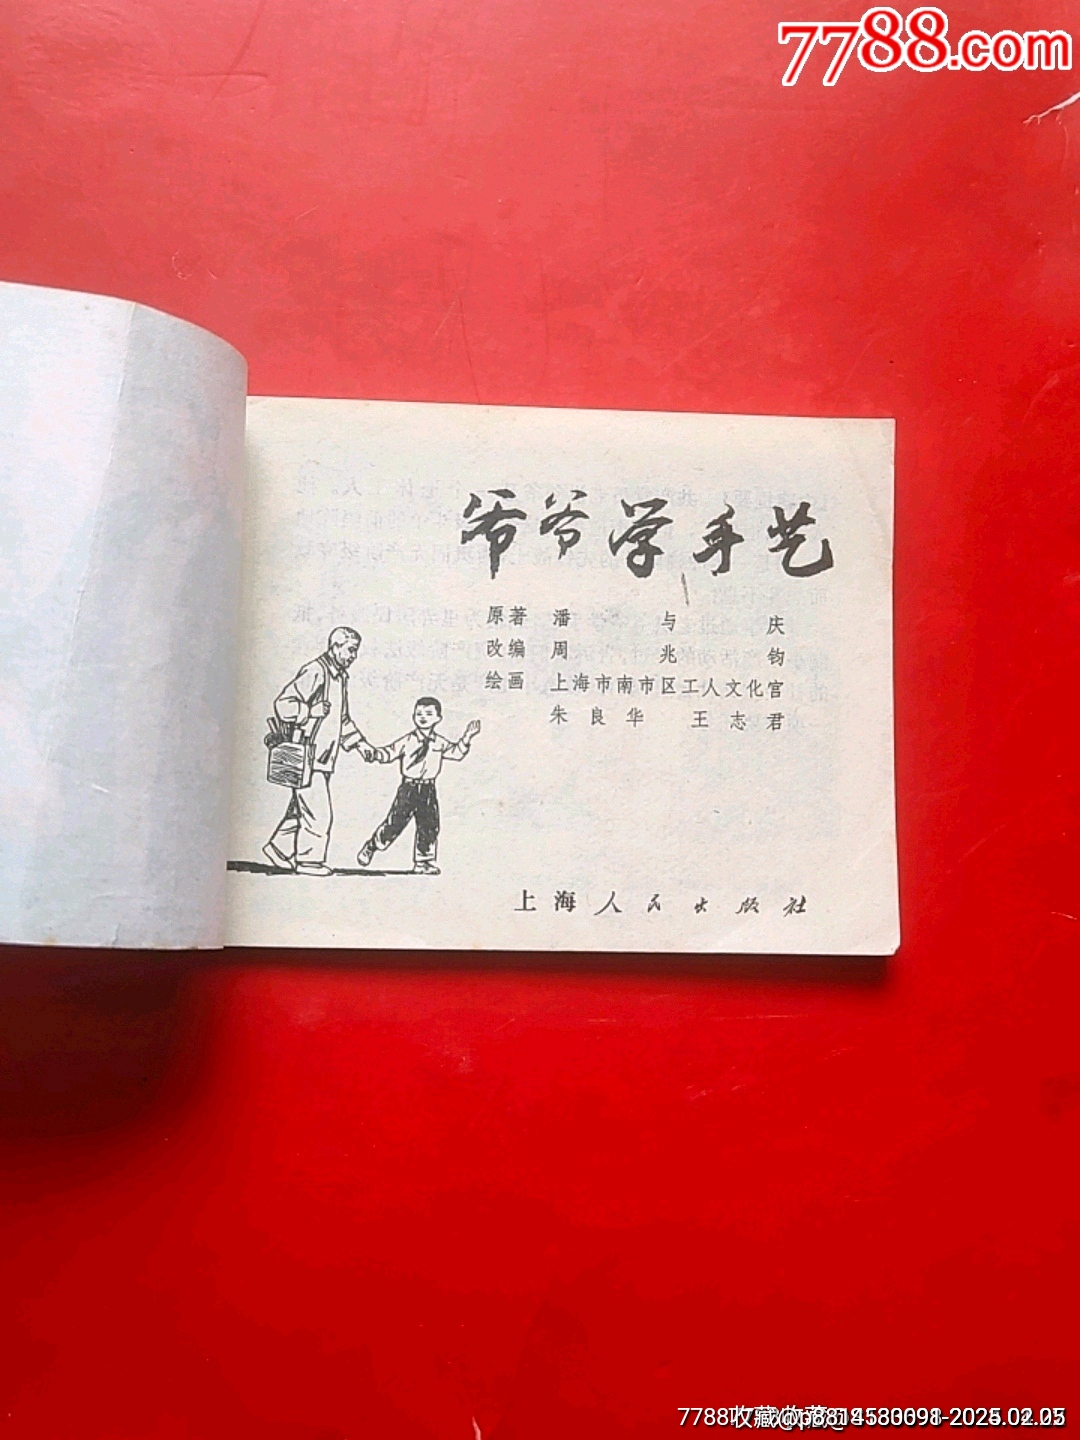 7788.com
爷爷学手艺
原著 潘与庆
改编 周兆钧
绘画 上海市南市区工人文化宫
朱良华 王志君
上海人民出版社